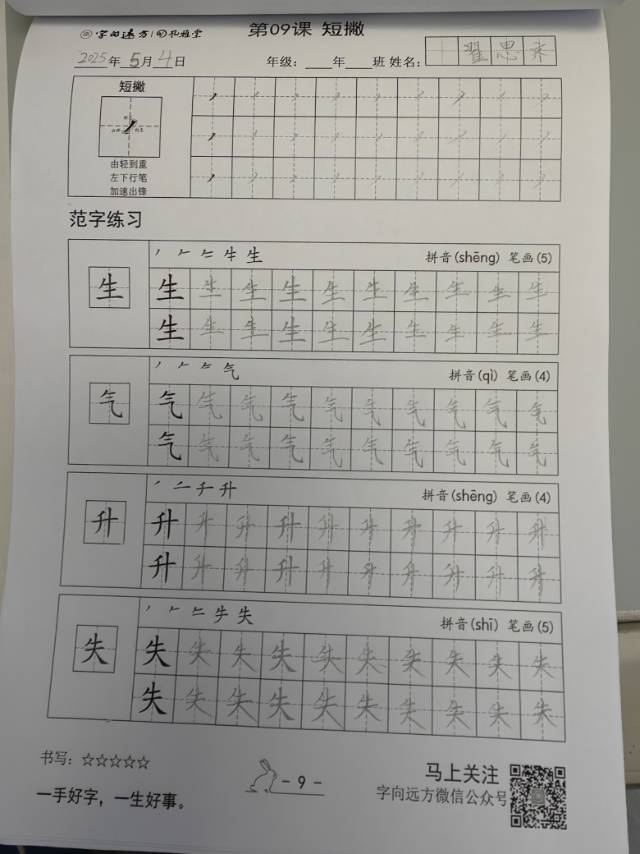 字向远方 孔雅堂 第09课 短撇
2025年5月4日 年级：___年___班 姓名： 翟思齐
短撇
由轻到重
左下行笔
加速出锋
范字练习
拼音(shēng) 笔画(5)
生 生 生 生 生 生 生 生 生 生 生
生 生 生 生 生 生 生 生 生 生
拼音(qì) 笔画(4)
气 气 气 气 气 气 气 气 气 气 气
气 气 气 气 气 气 气 气 气 气
拼音(shēng) 笔画(4)
升 升 升 升 升 升 升 升 升 升 升
升 升 升 升 升 升 升 升 升 升
拼音(shī) 笔画(5)
失 失 失 失 失 失 失 失 失 失 失
失 失 失 失 失 失 失 失 失 失
书写：☆☆☆☆☆
一手好字，一生好事。
- 9 -
马上关注
字向远方微信公众号